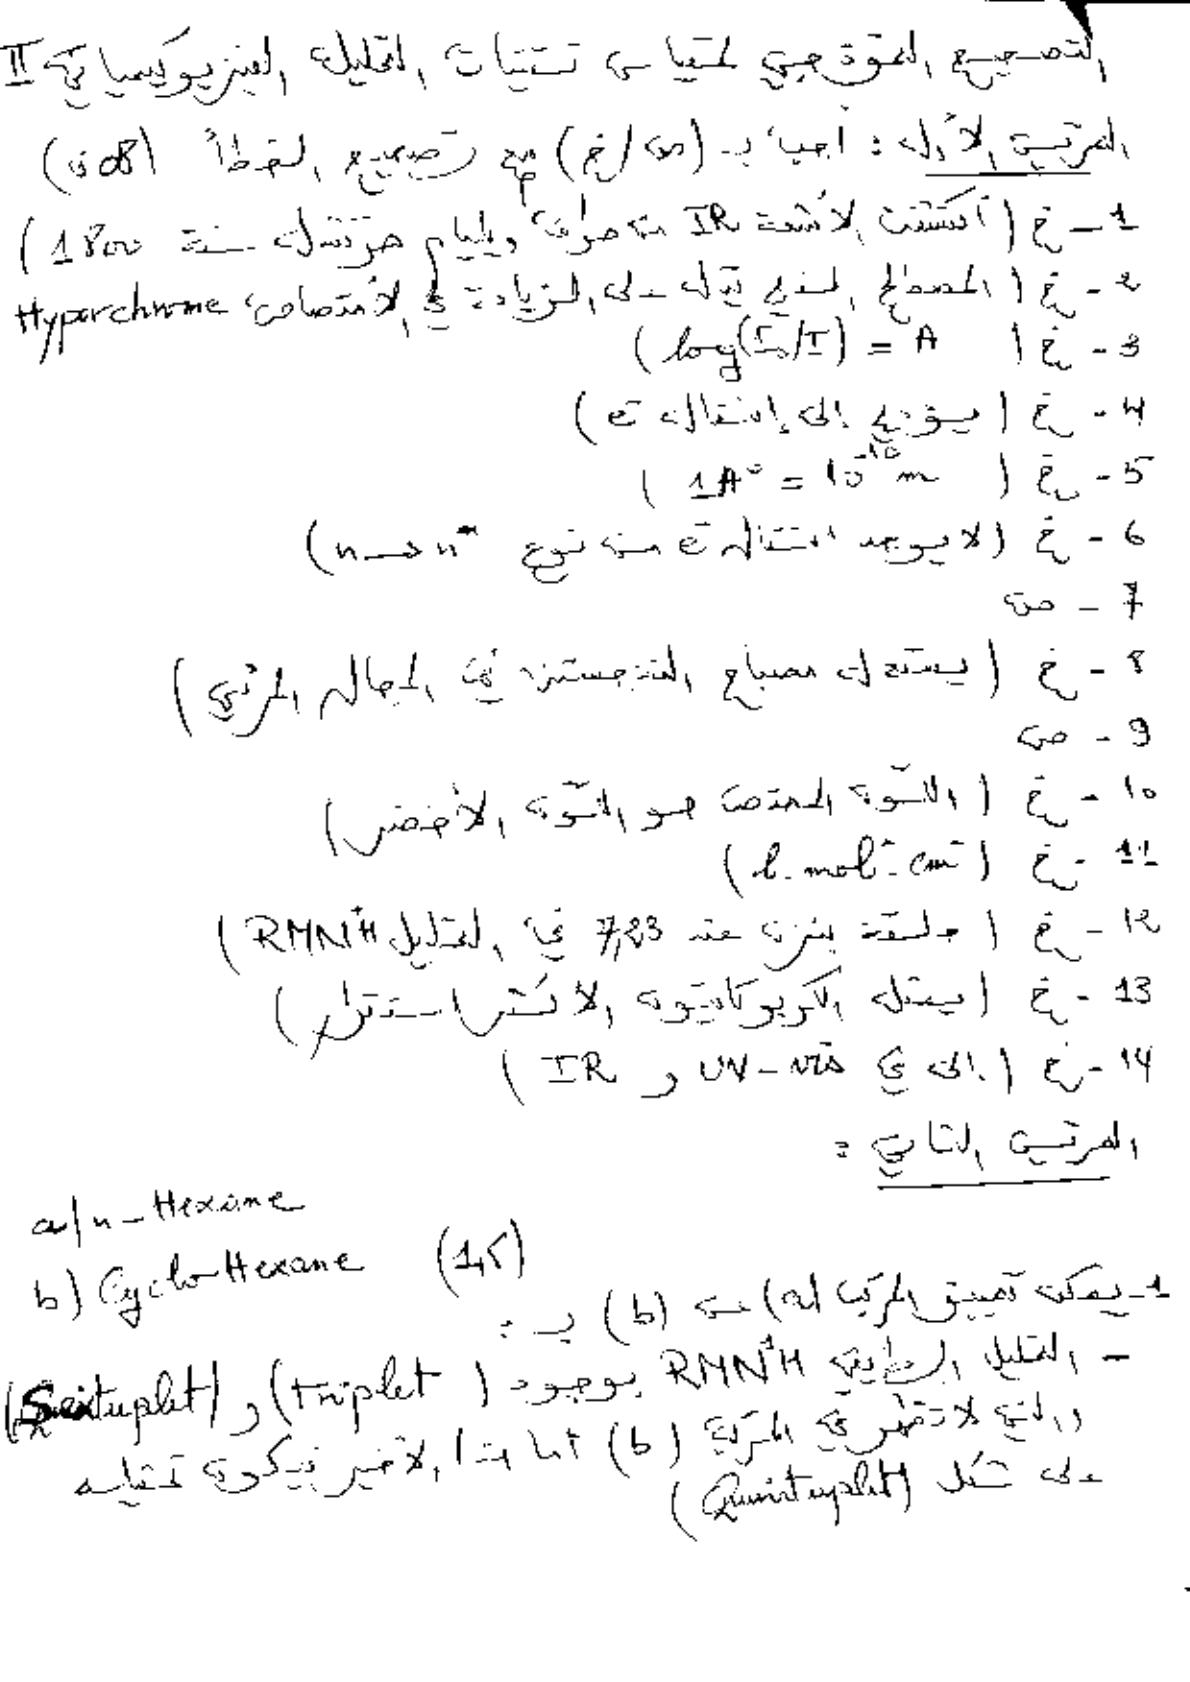 التصحيح النموذجي لمقياس تقنيات التحليل الفيزيوكيميائية II
التمرين الأول : أجب بـ (ص/خ) مع تصحيح الخطأ (08ن)
1 - خ (اكتشفت الأشعة IR من طرف ويليام هرتشل سنة 1800)
2 - خ (المصطلح الذي يدل على الزيادة في الامتصاص Hyperchrome
3 - خ (log(I₀/I) = A)
4 - خ (يؤدي إلى إنتقال e⁻)
5 - خ (1A° = 10⁻¹⁰ m)
6 - خ (لا يوجد انتقال e⁻ من نوع n→n*)
7 - ص
8 - خ (يستعمل مصباح التنجستين في المجال المرئي)
9 - ص
10 - خ (اللون الممتص هو اللون الأخضر)
11 - خ (l.mol⁻.cm⁻)
12 - خ (حلقة بنزن عند 7,23 في التحليل RMN¹H)
13 - خ (يمثل الكربوكاتيون الأكثر استقرار)
14 - خ (في UV-vis و IR)
التمرين الثاني :
a/ n-Hexane
b) Cyclo-Hexane (1,5)
1- يمكن تمييز المركب (a) من (b) بـ :
- التحليل الطيفي RMN¹H بوجود (triplet) و (Sextuplet)
والتي لا تظهر في المركب (b) أما هذا الأخير فيكون تحليله
على شكل (Quintuplet)